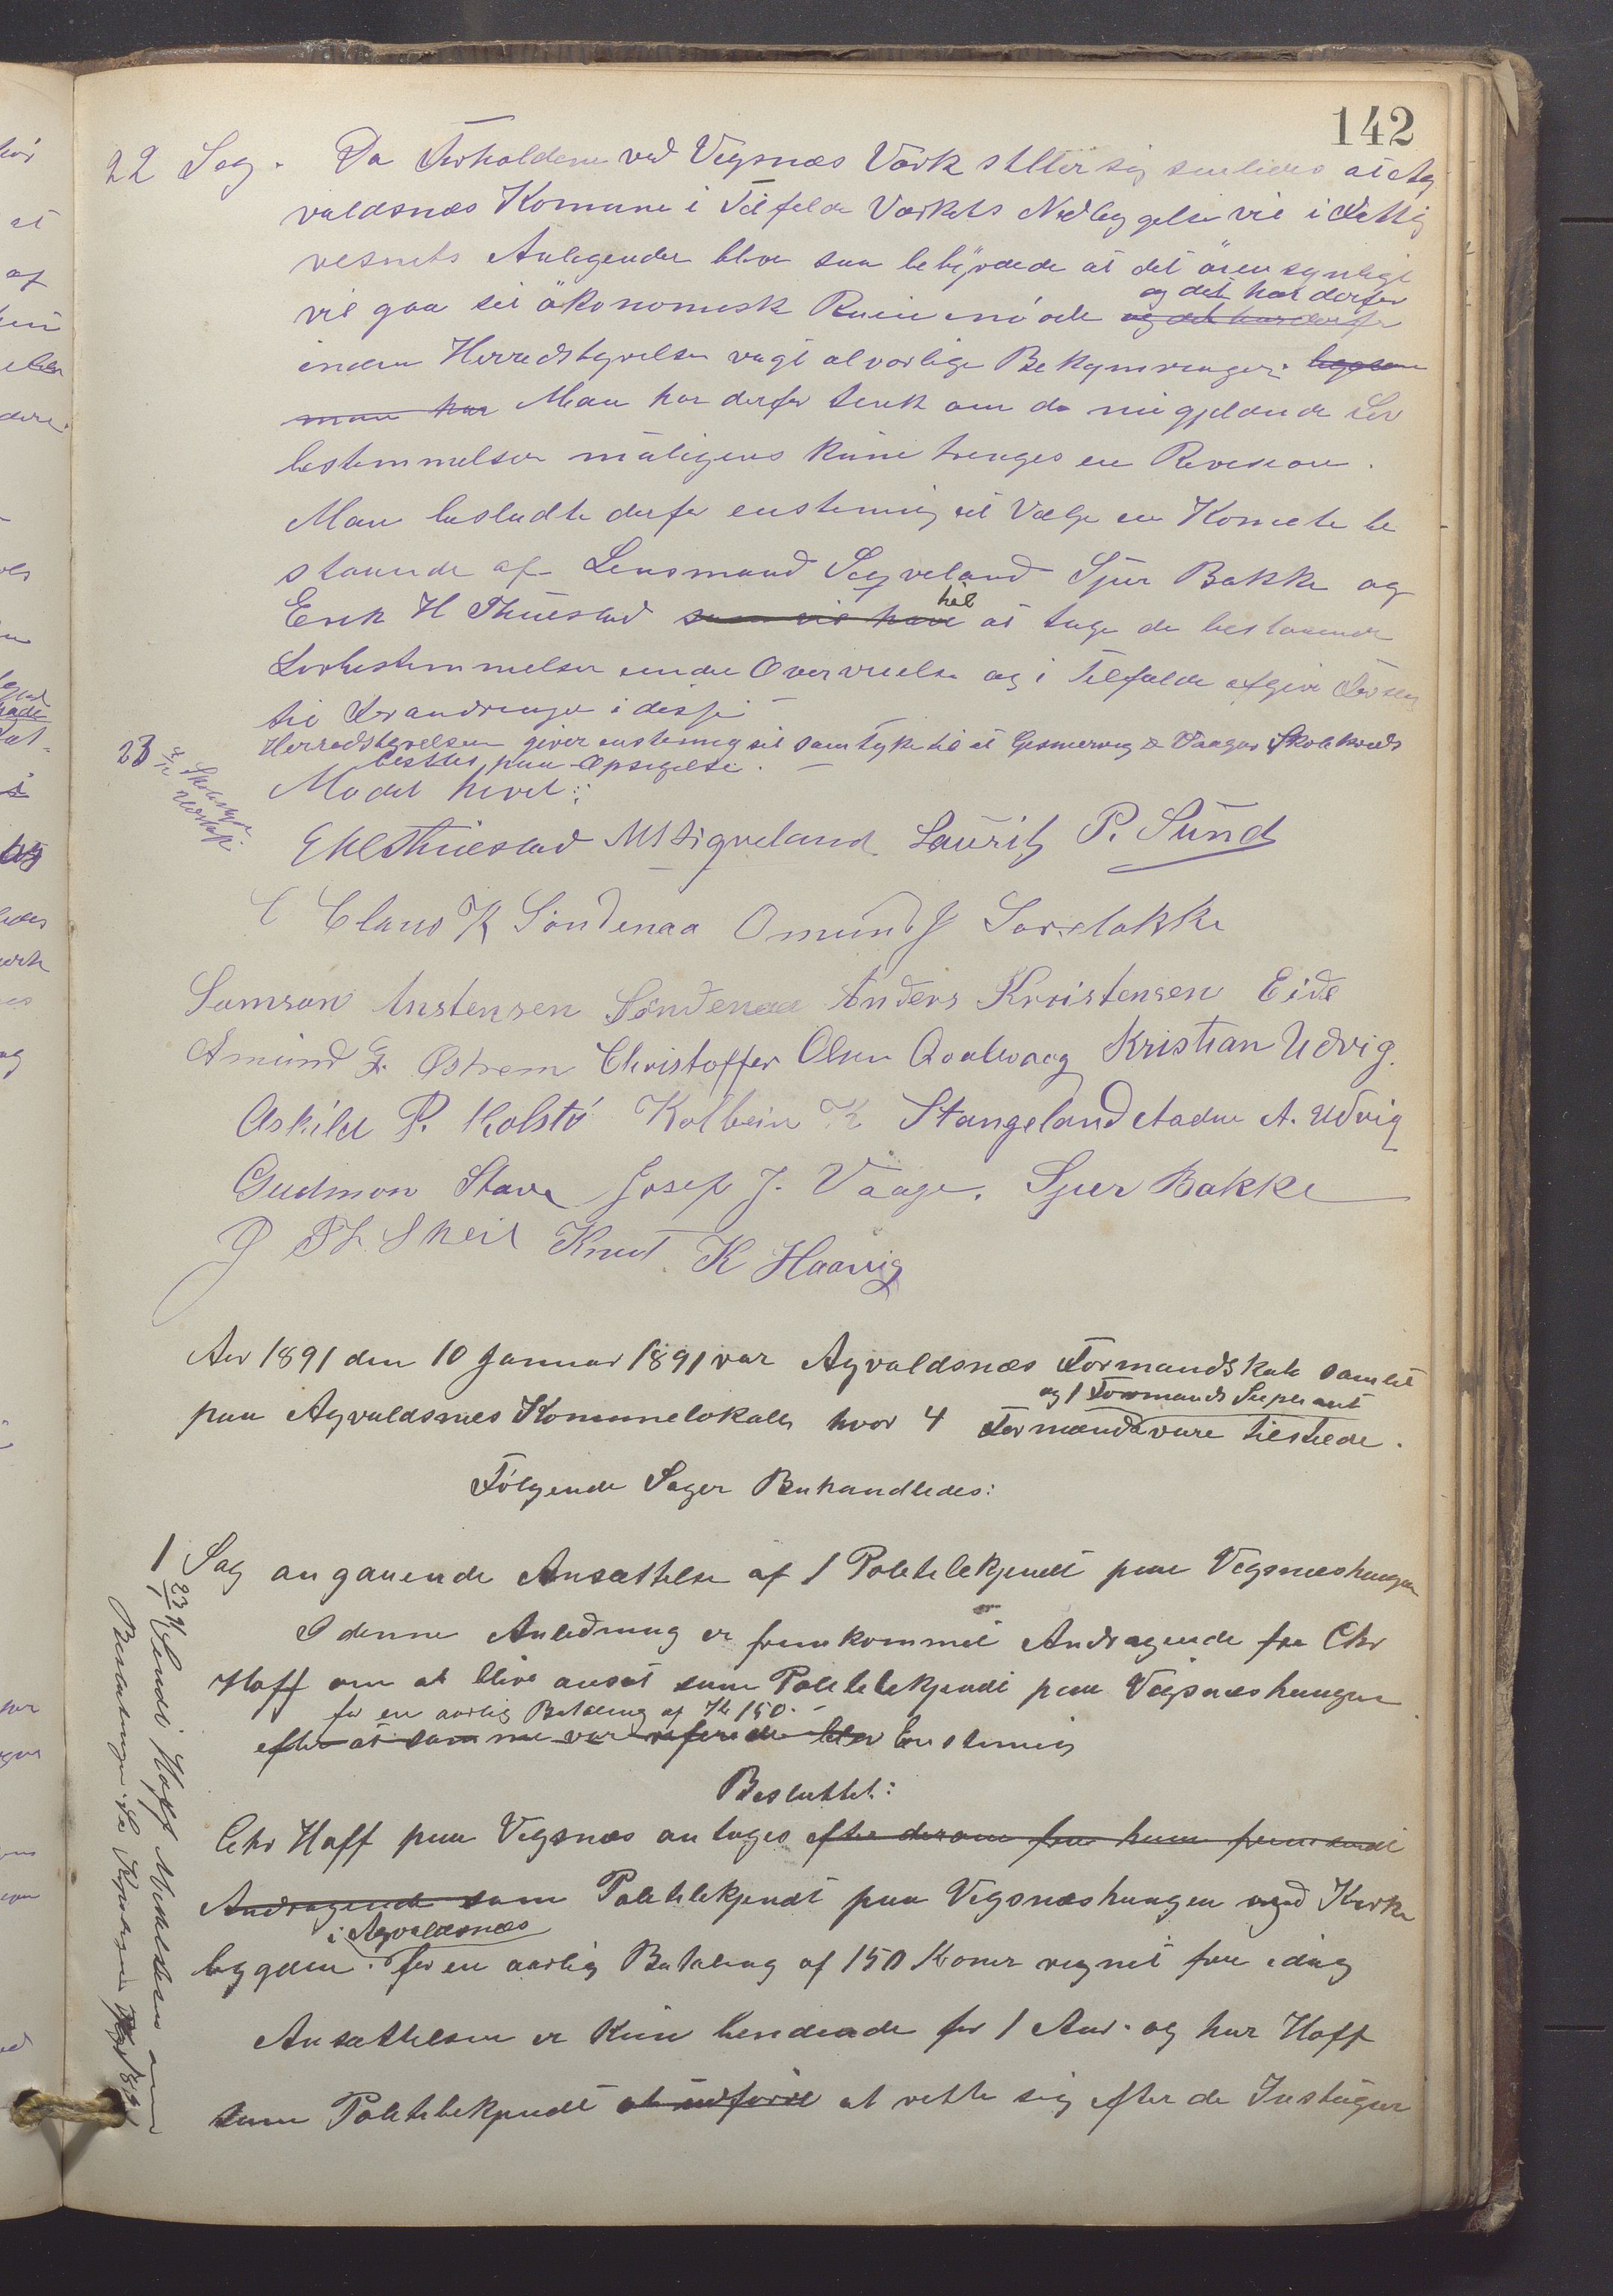 142
22 Sag. Da Forholdene ved Vigsnæs Værk stiller sig saaledes at Ag
valdsnæs Komune i Tilfelde Værkets Nedleggelse vil i Fattig
vesnets Anligender blive saa bebyrdede at det øiensynligt
vil gaa sit økonomisk Ruin imøde og det har derfor
og det har derfor
inden Herredstyrelsen vagt alvorlige Bekymringer.
man har Man har derfor tenk om de nu gjeldende Lov
bestemmelser muligens kune trenges en Revesion.
Man besludte derfor enstemig at Vælge en Komete be
staaende af Lensmand Sigveland Sjur Bakke og
Erik H Thuestad som vil have til at tage de bestaaende
Lovbestemmelser under Overveielse og i Tilfelde afgive Forslag
til Forandringer i disse
23 Herredstyrelsen giver enstemig sit samtyke til at Gismervig & Vaages Skolekreds
bestaar paa Opsigelse.
Modet hevet:
E H Thuestad MS Sigveland Lauritz P. Sund
Claus K Søndenaa Omund J Sørelokke
Samson Anstensen Søndenaa Anders Kristensen Eide
Amund G. Østrem Christoffer Olsen Qvalevaag Kristian Udvig.
Askild P. Kolstø Kolbein K Stangeland Aadne A. Udvig
Gudmon Stava Josef J. Vaage. Sjur Bakke
Knut K Haavig
Aar 1891 den 10 Januar 1891 var Agvaldsnæs Formandskab samlet
og 1 Formands Supleant
paa Agvaldsnæs Komunelokale hvor 4 Formænd vare tilstede.
Følgende Sager Behandledes:
1 Sag angaaende Ansættelse af 1 Politibekjendt paa Vigsnæshaugen
I denne Anledning er fremkommet Andragende fra Chr
Hoff om at blive ansat som Politibekjendt paa Vigsnæshaugen
for en aarlig Betaling af Kr 150.
efter at samme var Enstemig
Besluttet:
Chr Hoff paa Vigsnæs antages efter derom fra ham fremsendt
Andragende som Politibekjendt paa Vigsnæshaugen med Kirke
i Agvaldsnæs
bygden. for en aarlig Betaling af 150 Kroner regnet fra idag
Ansættelsen er kun bendende for 1 Aar. og har Hoff
som Politibekjendt at udføre at rette sig efter de Instugser
23/1 Sendt Hoff Meddelelse om
Beslutningen. Se Kopibogen